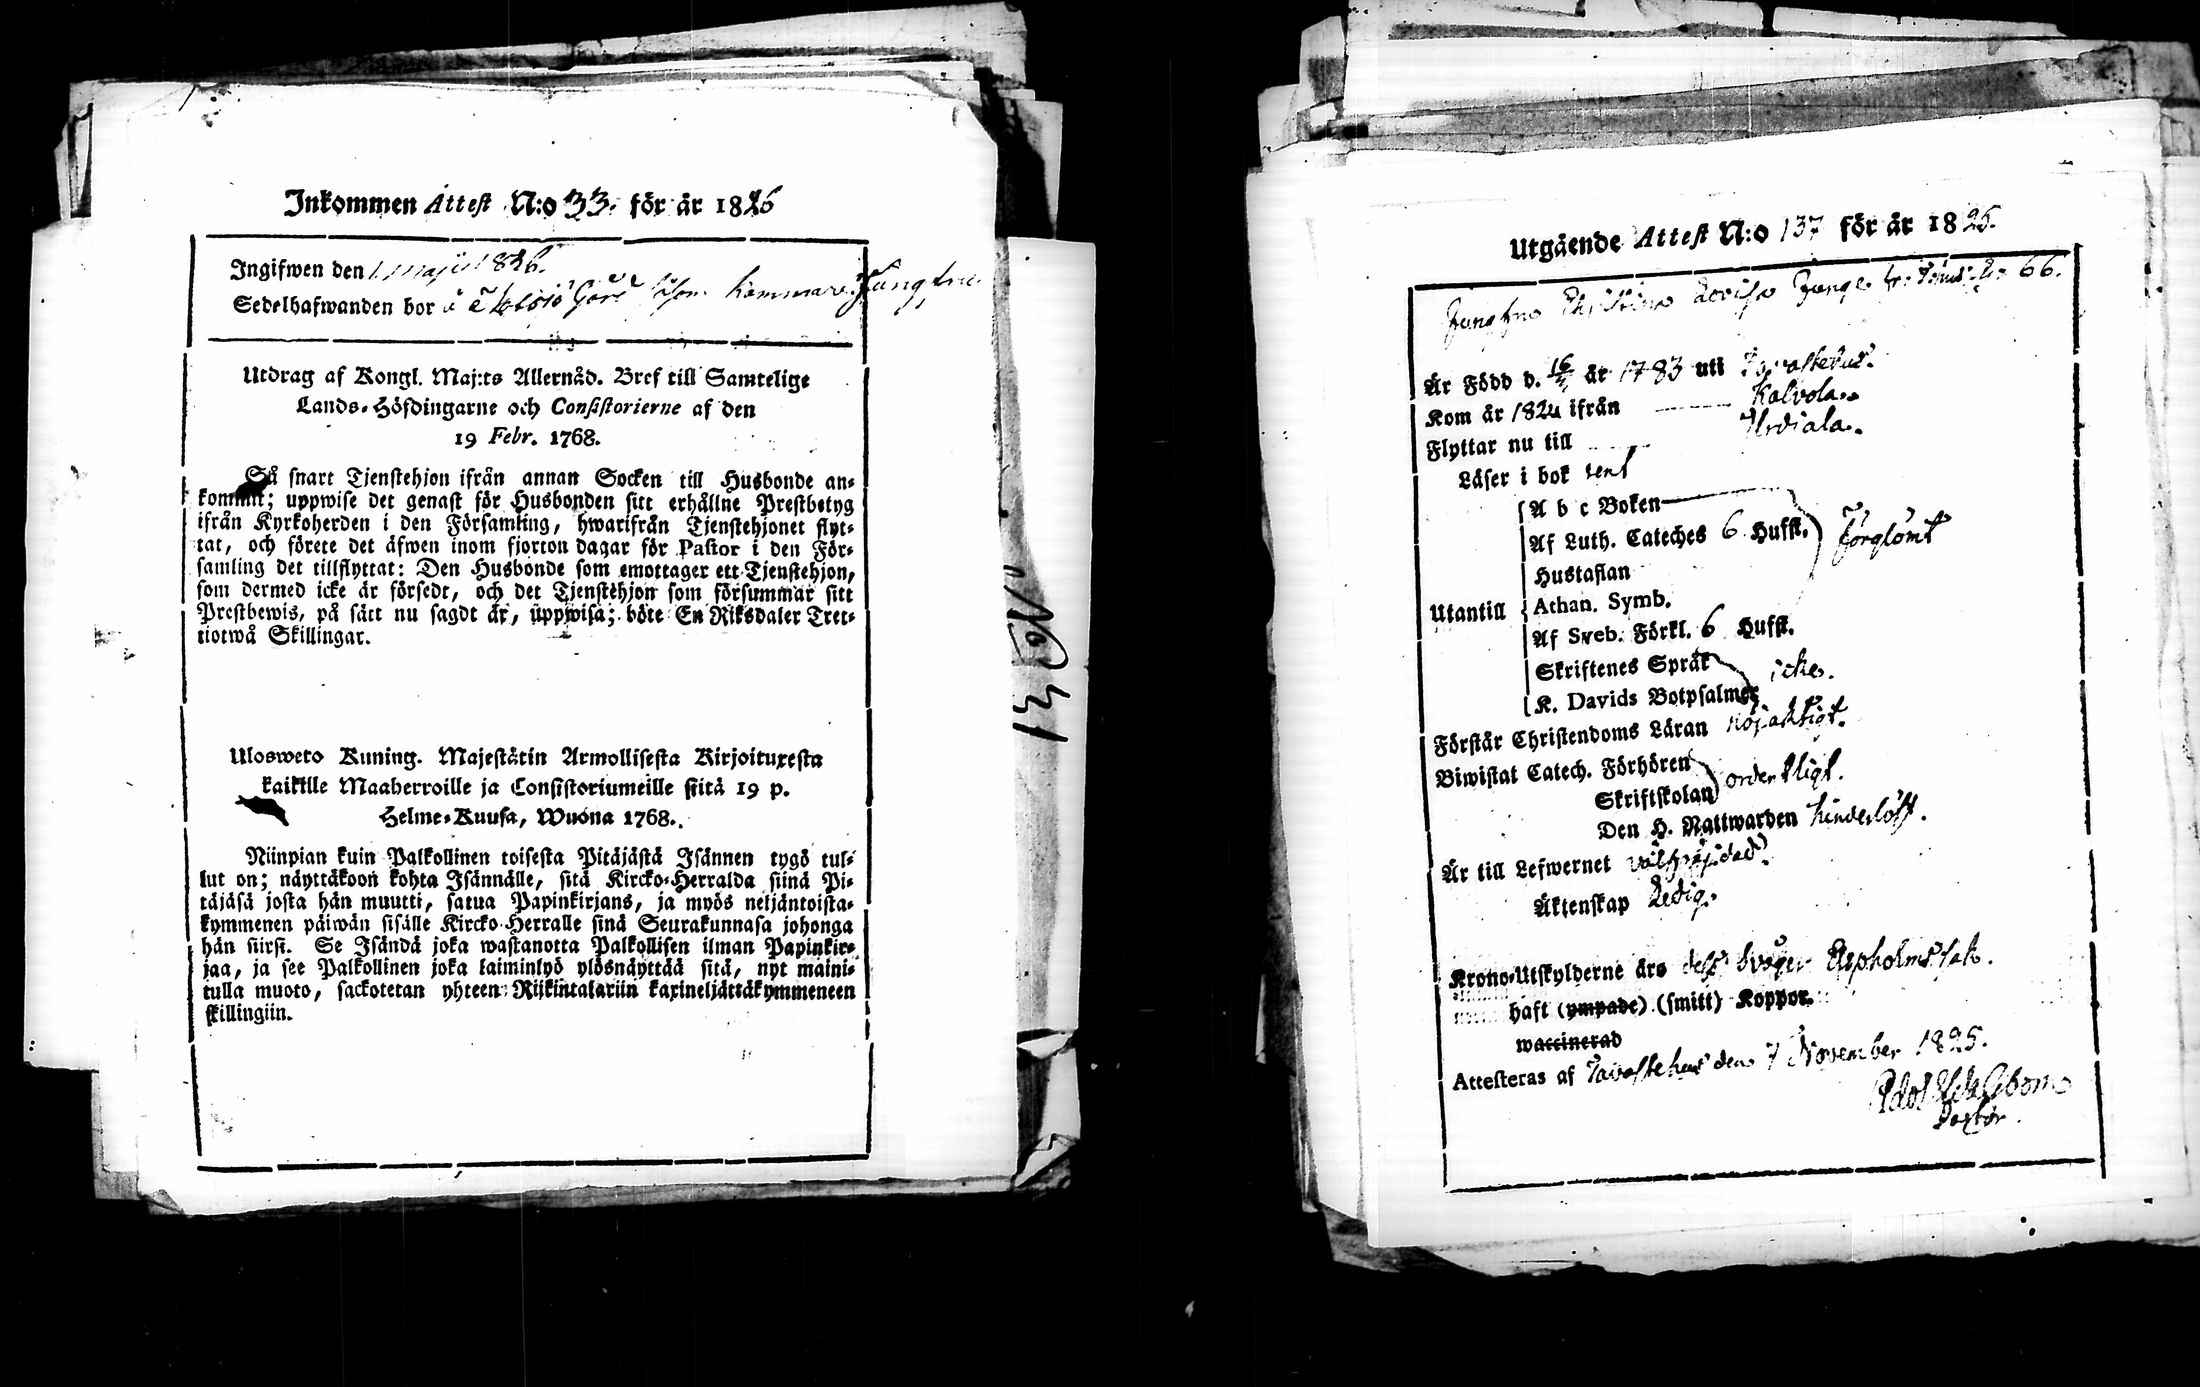 Inkommen Attest N:o 33. för år 1826
Ingifwen den 1 Maji 1826.
Sedelhafwanden bor å Gård som kammar Jungfru
Utdrag af Kongl. Maj:ts Allernåd. Bref till Samtelige
Lands-Höfdingarne och Consistorierne af den
19 Febr. 1768.
Så snart Tjenstehjon ifrån annan Socken till Husbonde an-
kommit; uppwise det genast för Husbonden sitt erhållne Prestbetyg
ifrån Kyrkoherden i den Församling, hwarifrån Tjenstehjonet flyt-
tat, och förete det äfwen inom fjorton dagar för Pastor i den För-
samling det tillflyttat: Den Husbonde som emottager ett Tjenstehjon,
som dermed icke är försedt, och det Tjenstehjon som försummar sitt
Prestbewis, på sätt nu sagdt är, uppwisa; böte En Riksdaler Tret-
tiotwå Skillingar.
Ulosweto Kuning. Majestätin Armollisesta Kirjoituxesta
kaikille Maaherroille ja Consistoriumeille siitä 19 p.
Helme-Kuusa, Wuona 1768.
Niinpian kuin Palkollinen toisesta Pitäjästä Isännen tygö tul-
lut on; näyttäkoon kohta Isännälle, sitä Kircko-Herralda siinä Pi-
täjäsä josta hän muutti, satua Papinkirjans, ja myös neljäntoista-
kymmenen päiwän sisälle Kircko-Herralle sinä Seurakunnasa johonga
hän siirsi. Se Isändä joka wastanotta Palkollisen ilman Papinkir-
jaa, ja see Palkollinen joka laiminlyö ylösnäyttää sitä, nyt maini-
tulla muoto, sackotetan yhteen Riikintalariin kaxineljättäkymmeneen
skillingiin.
No 131
Utgående Attest N:o 137 för år 1825.
Jungfru Christina Lovisa Junge 66.
Är Född d. 16 år 1783 uti Tavastehus.
Kom år 1824 ifrån Kalvola.
Flyttar nu till Urdiala.
Läser i bok rent
Utantill
A b c Boken
Af Luth. Cateches 6 Hufst. förglömt
Hustaflan
Athan. Symb.
Af Sveb. Förkl. 6 Hufst.
Skriftenes Språk icke.
K. Davids Botpsalmer
Förstår Christendoms Läran nöjaktigt.
Biwistat Catech. Förhören ordentligt.
Skriftskolan
Den H. Nattwarden hinderlöst.
Är till Lefwernet välfrejdad.
Äktenskap Ledig.
Krono-Utskylderne äro
haft (ympade) (smitt) Koppor.
waccinerad
Attesteras af Tavastehus den 7 November 1825.
Pastor.